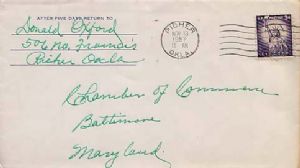 AFTER FIVE DAYS RETURN TO
Donald Oxford
506 No. Francis
Picher Okla
PICHER
NOV 13
1957
OKLA.
Chamber of Commerce
Baltimore
Maryland